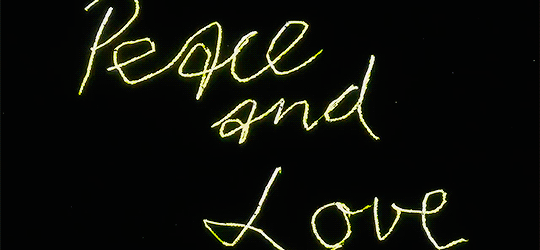 Peace
and
Love